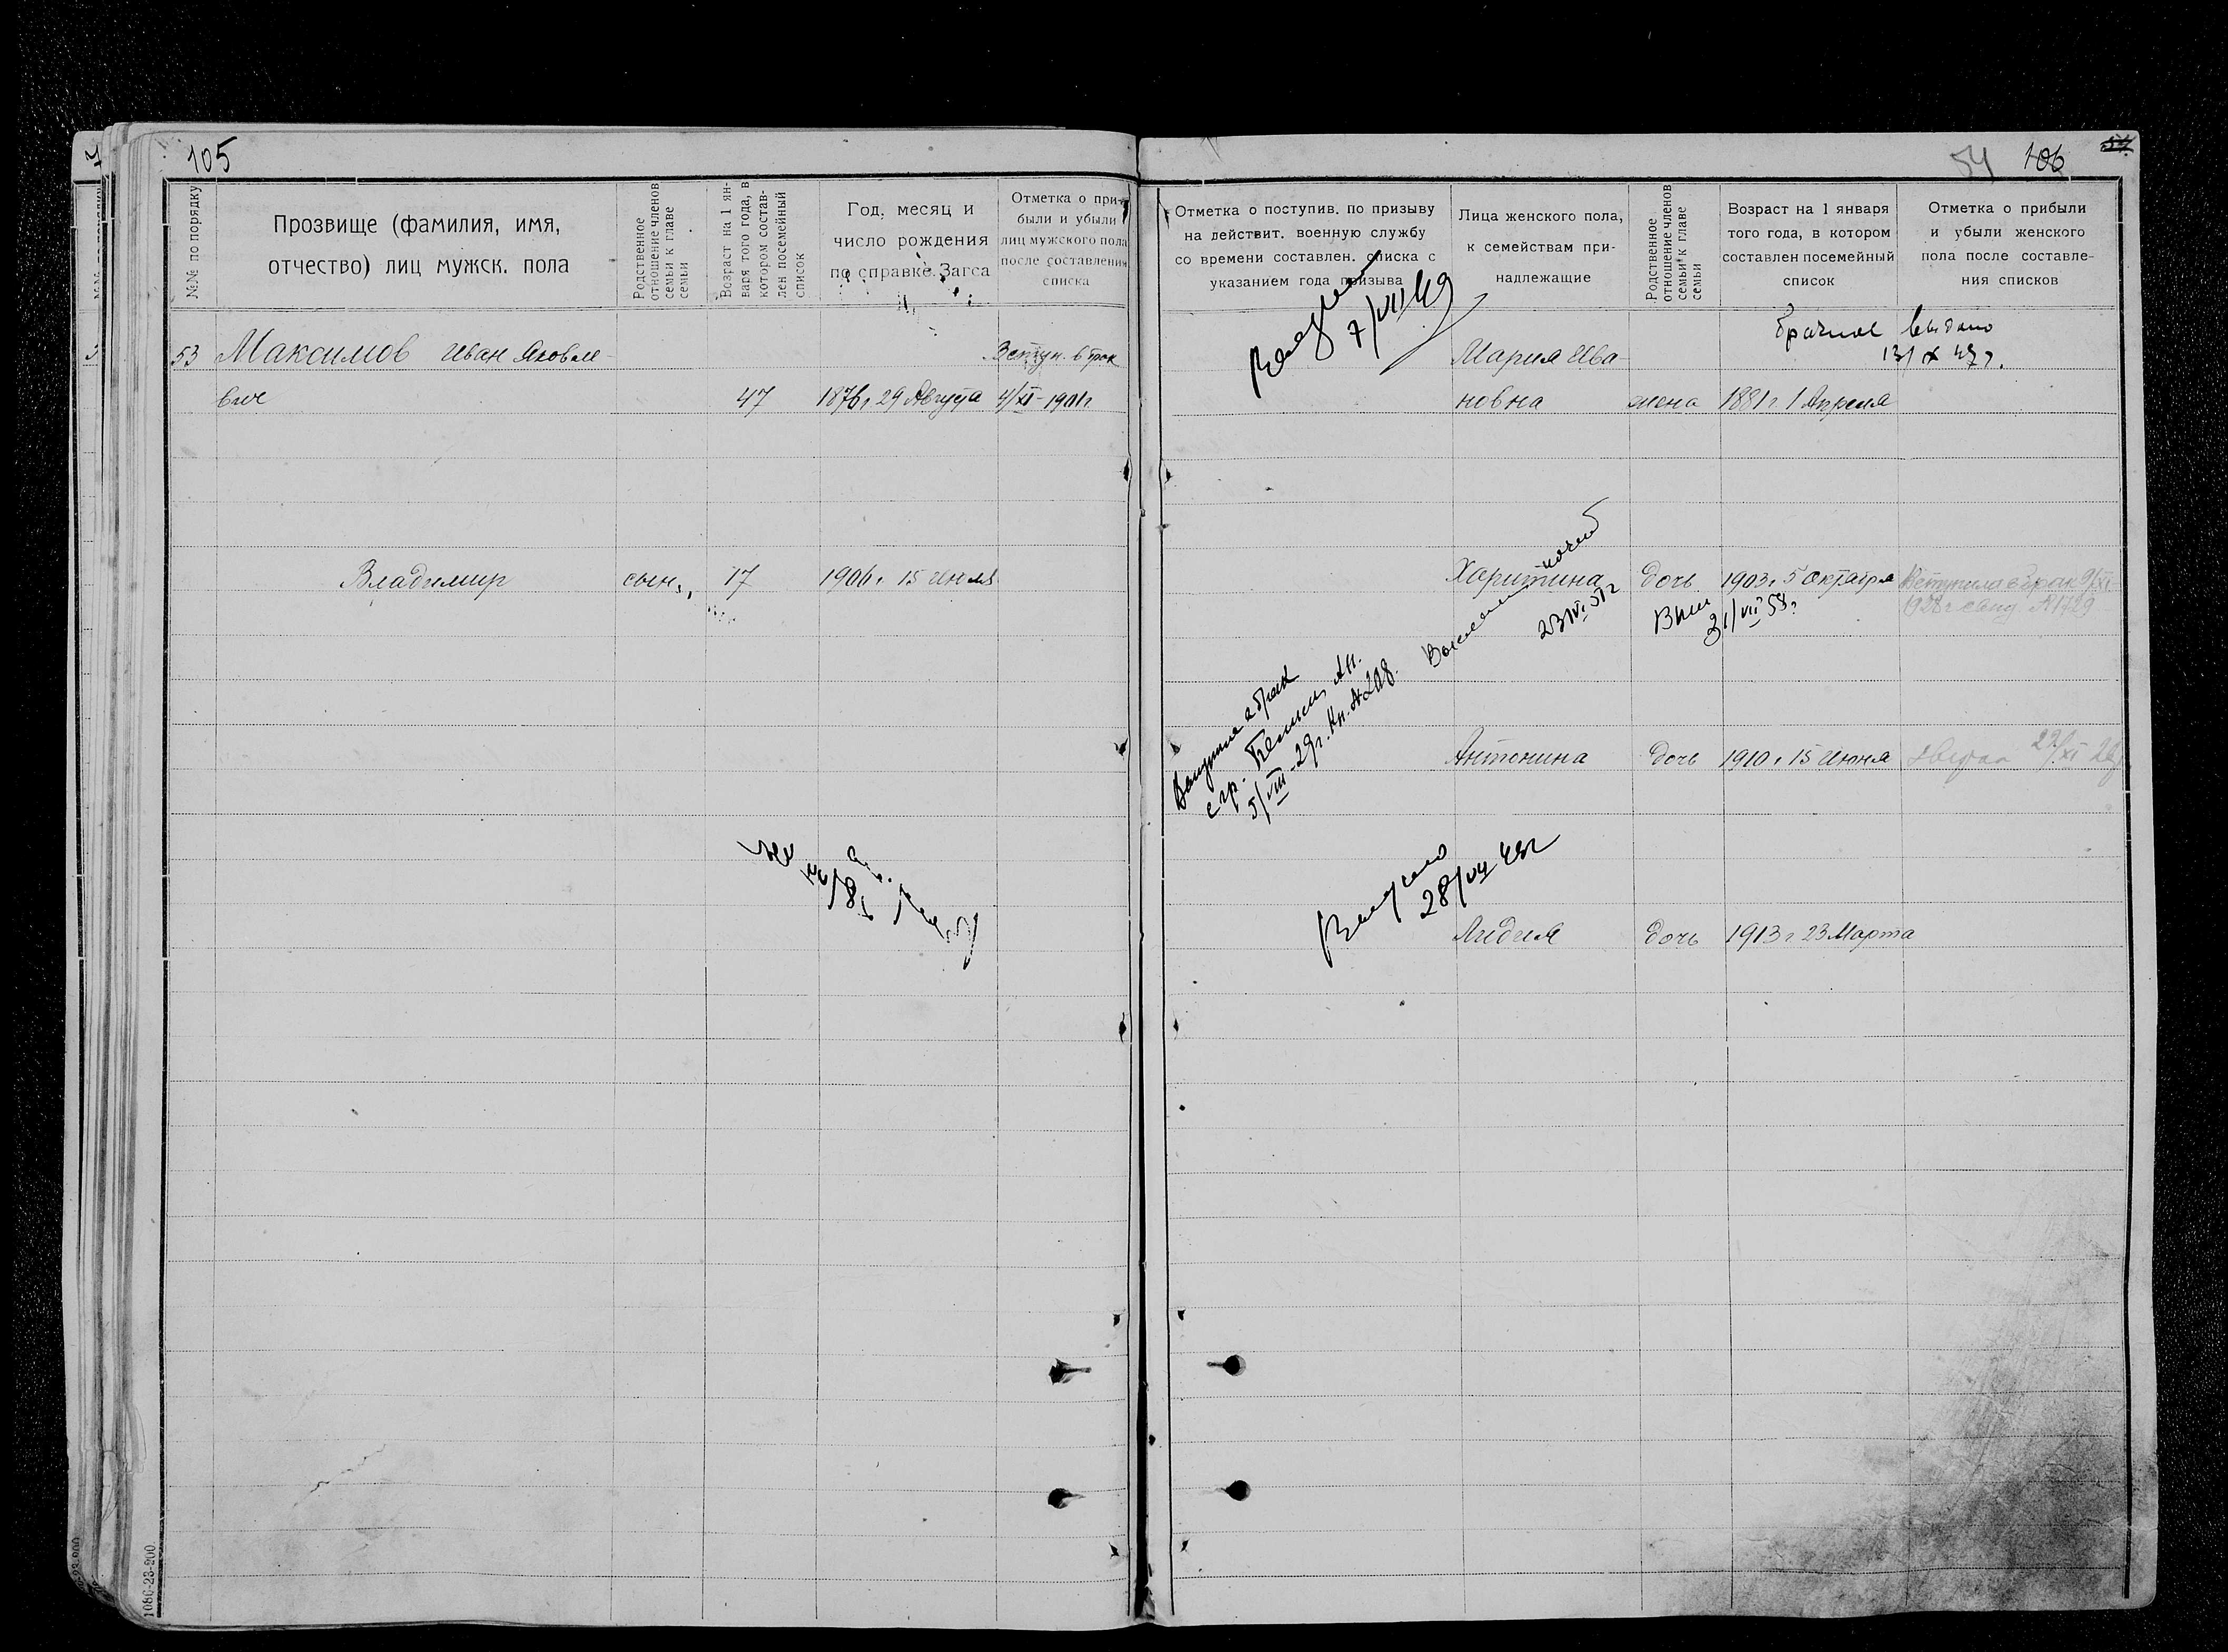 105
№№ по порядку
Прозвище (фамилия, имя,
отчество) лиц мужск. пола
Родственное
отношение членов
семьи к главе
семьи
Возраст на 1 ян-
варя того года, в
котором состав-
лен посемейный
список
Год, месяц и
число рождения
по справке Загса
Отметка о при-
были и убыли
лиц мужского пола
после составления
списка
53 Максимов Иван Яковле-
вич
47 1876 г 29 Августа
Вступ. в брак
4/XI-1901 г.
Владимир сын 17 1906 г 15 Июля
1086-23-200
54 106 54
Отметка о поступив. по призыву
на действит. военную службу
со времени составлен. списка с
указанием года призыва
Лица женского пола,
к семействам при-
надлежащие
Родственное
отношение членов
семьи к главе
семьи
Возраст на 1 января
того года, в котором
составлен посемейный
список
Отметка о прибыли
и убыли женского
пола после составле-
ния списков
7/VII 49
брачное выдано
13/X 47 г.
Мария Ива-
новна жена 1881 г 1 Апреля
Харитина дочь 1903 г 5 Октября Вступила в брак 9/XI-
1928 г
23/VI 51 г
Вып
31/VII 58 г
с гр.
5/VIII-29 г. Кн. № 208.
Антонина дочь 1910 г 15 Июня
28/VII 49 г
Лидия дочь 1913 г 23 Марта